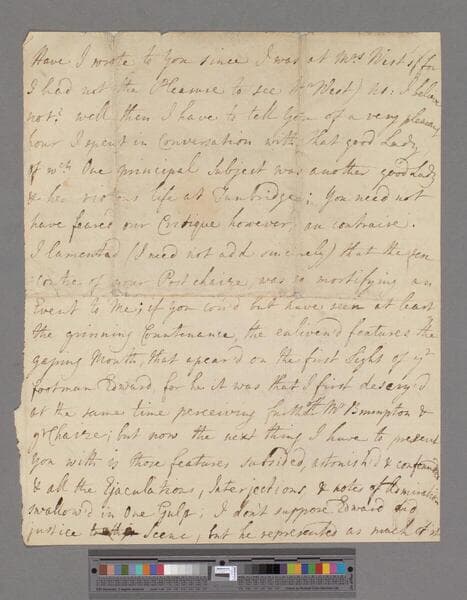 Have I wrote to you since I was at Mrs West's (for
I had not the Pleasure to see Mr West) no: I believe
not: well then I have to tell You of a very pleasant
hour I spent in Conversation with that good Lady
of wch One principal Subject was another good Lady
& her riotous life at Tunbridge; You need not
have feared our Critique however, au contraire.
I lamented (I need not add sincerely) that the
of your Post chaize was so mortifying an
Event to me; if you cou'd but have seen at least
the grinning Countenance, the enliven'd features the
gaping Mouth that apear'd on the first Sight of yr
footman Edward, for he it was that I first descry'd
at the same time perceiving Mr Brompton &
yr Chaize; but now the next thing I have to present
You with is those features subsided, astonish'd & confounded
& all the Ejaculations, Interjections & notes of Admiration
swallow'd in One Gulp; I don't suppose Edward did
justice Scene, but he represented as much of it